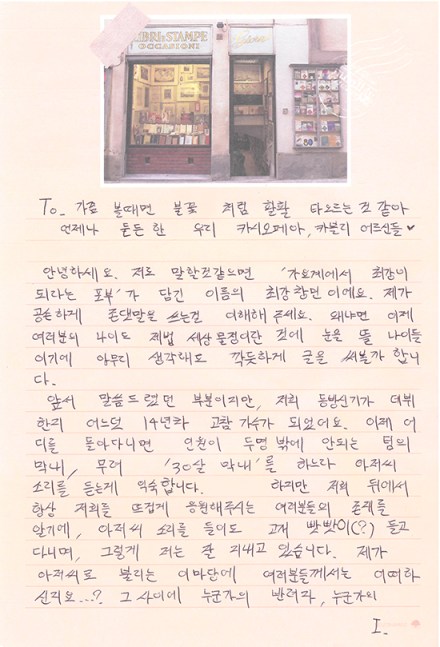 LIBRI & STAMPE
OCCASIONI
To_ 가끔 볼때면 불꽃 처럼 활활 타오르는것 같아
언제나 든든한 우리 카시오페아, 카볼리 어르신들♥
안녕하세요. 저로 말할것같으면 '가요계에서 최강이
되라는 포부'가 담긴 이름의 최강창민이에요. 제가
공손하게 존댓말을 쓰는건 이해해 주세요. 왜냐면 이제
여러분의 나이도 제법 세상물정이란 것에 눈을 뜰 나이들
이기에 아무리 생각해도 깍듯하게 글을 써볼까 합니
다.
앞서 말씀드렸던 부분이지만, 저희 동방신기가 데뷔
한지 어느덧 14년차 고참 가수가 되었어요. 이제 어
디를 돌아다니면 인원이 두명 밖에 안되는 팀의
막내, 무려 '30살 막내'를 하느라 아저씨
소리를 듣는게 익숙합니다. 하지만 저희 뒤에서
항상 저희를 뜨겁게 응원해주시는 여러분들의 존재를
알기에, 아저씨 소리를 들어도 고개 빳빳이(?) 들고
다니며, 그렇게 저는 잘 지내고 있습니다. 제가
아저씨로 불리는 이마당에 여러분들께서는 어떠하
신지요...? 그 사이에 누군가의 반려자, 누군가의
I.